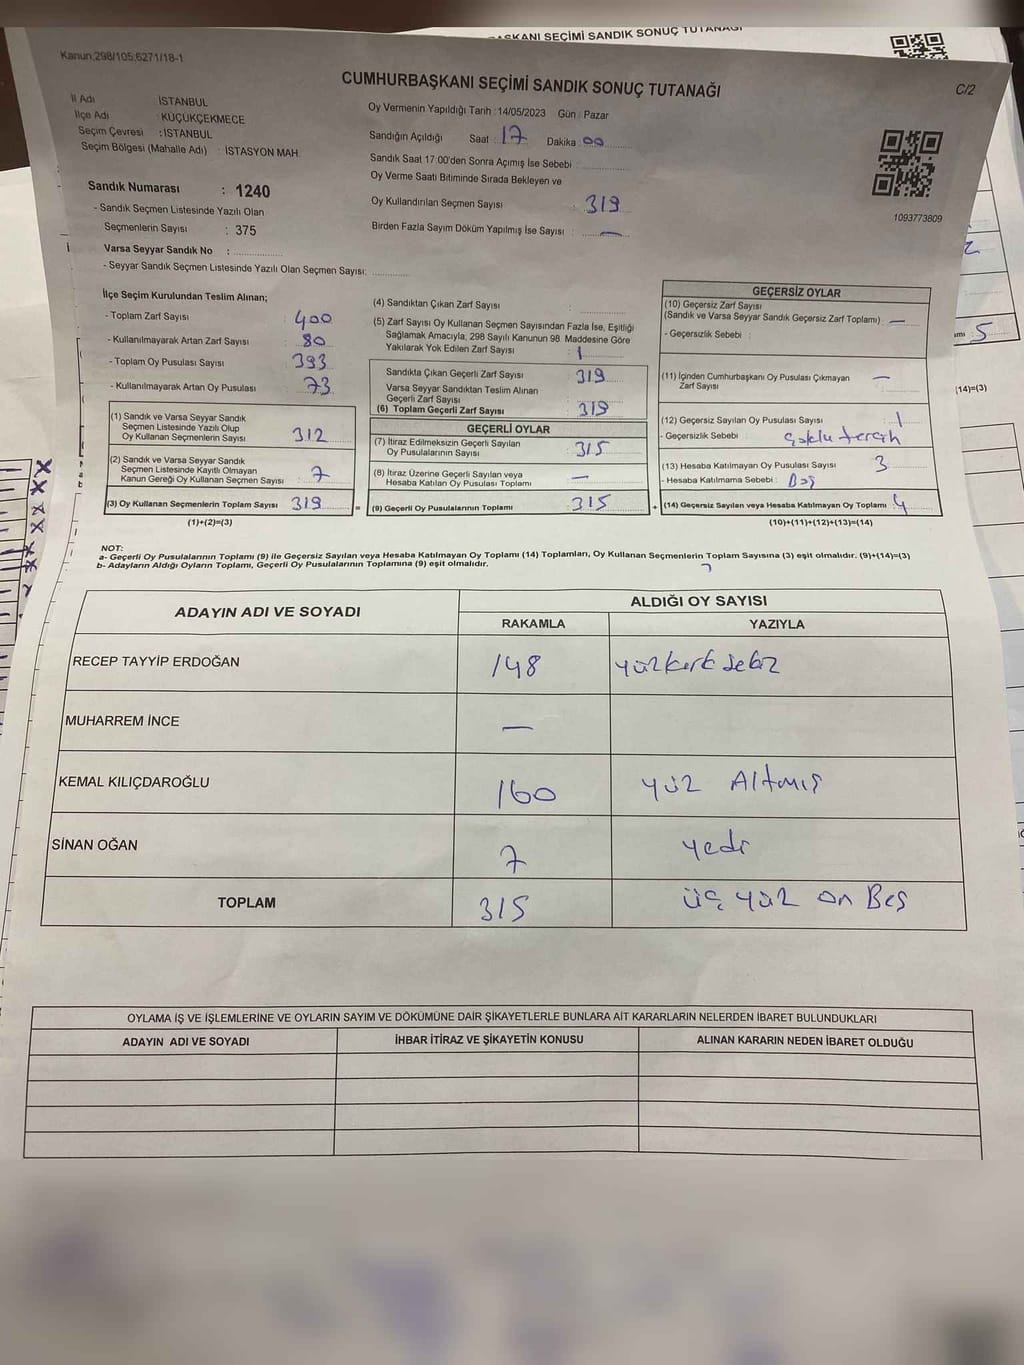 BAŞKANI SEÇİMİ SANDIK SONUÇ TUTANAĞI
Kanun;298/105;6271/18-1
CUMHURBAŞKANI SEÇİMİ SANDIK SONUÇ TUTANAĞI
C/2
İl Adı İSTANBUL
İlçe Adı : KÜÇÜKÇEKMECE
Seçim Çevresi : İSTANBUL
Seçim Bölgesi (Mahalle Adı) : İSTASYON MAH.
Sandık Numarası : 1240
- Sandık Seçmen Listesinde Yazılı Olan
Seçmenlerin Sayısı : 375
Varsa Seyyar Sandık No :
- Seyyar Sandık Seçmen Listesinde Yazılı Olan Seçmen Sayısı:
Oy Vermenin Yapıldığı Tarih : 14/05/2023 Gün : Pazar
Sandığın Açıldığı Saat : 17 Dakika : 00
Sandık Saat 17:00'den Sonra Açımış İse Sebebi :
Oy Verme Saati Bitiminde Sırada Bekleyen ve
Oy Kullandırılan Seçmen Sayısı : 319
Birden Fazla Sayım Döküm Yapılmış İse Sayısı : —
1093773809
İlçe Seçim Kurulundan Teslim Alınan;
- Toplam Zarf Sayısı : 400
- Kullanılmayarak Artan Zarf Sayısı : 80
- Toplam Oy Pusulası Sayısı : 393
- Kullanılmayarak Artan Oy Pusulası : 73
(1) Sandık ve Varsa Seyyar Sandık
Seçmen Listesinde Yazılı Olup
Oy Kullanan Seçmenlerin Sayısı : 312
(2) Sandık ve Varsa Seyyar Sandık
Seçmen Listesinde Kayıtlı Olmayan
Kanun Gereği Oy Kullanan Seçmen Sayısı : 7
(3) Oy Kullanan Seçmenlerin Toplam Sayısı : 319
(1)+(2)=(3)
(4) Sandıktan Çıkan Zarf Sayısı :
(5) Zarf Sayısı Oy Kullanan Seçmen Sayısından Fazla İse, Eşitliği
Sağlamak Amacıyla, 298 Sayılı Kanunun 98. Maddesine Göre
Yakılarak Yok Edilen Zarf Sayısı : 1
Sandıkta Çıkan Geçerli Zarf Sayısı : 319
Varsa Seyyar Sandıktan Teslim Alınan
Geçerli Zarf Sayısı :
(6) Toplam Geçerli Zarf Sayısı : 319
GEÇERLİ OYLAR
(7) İtiraz Edilmeksizin Geçerli Sayılan
Oy Pusulalarının Sayısı : 315
(8) İtiraz Üzerine Geçerli Sayılan veya
Hesaba Katılan Oy Pusulası Toplamı : —
= (9) Geçerli Oy Pusulalarının Toplamı : 315
GEÇERSİZ OYLAR
(10) Geçersiz Zarf Sayısı
(Sandık ve Varsa Seyyar Sandık Geçersiz Zarf Toplamı) : —
- Geçersizlik Sebebi :
(11) İçinden Cumhurbaşkanı Oy Pusulası Çıkmayan
Zarf Sayısı : —
(12) Geçersiz Sayılan Oy Pusulası Sayısı : 1
- Geçersizlik Sebebi : Çoklu tercih
(13) Hesaba Katılmayan Oy Pusulası Sayısı : 3
- Hesaba Katılmama Sebebi : Boş
+ (14) Geçersiz Sayılan veya Hesaba Katılmayan Oy Toplamı : 4
(10)+(11)+(12)+(13)=(14)
5
(14)=(3)
NOT:
a- Geçerli Oy Pusulalarının Toplamı (9) ile Geçersiz Sayılan veya Hesaba Katılmayan Oy Toplamı (14) Toplamları, Oy Kullanan Seçmenlerin Toplam Sayısına (3) eşit olmalıdır. (9)+(14)=(3)
b- Adayların Aldığı Oyların Toplamı, Geçerli Oy Pusulalarının Toplamına (9) eşit olmalıdır.
ADAYIN ADI VE SOYADI
ALDIĞI OY SAYISI
RAKAMLA YAZIYLA
RECEP TAYYİP ERDOĞAN 148 yüzkırk sekiz
MUHARREM İNCE —
KEMAL KILIÇDAROĞLU 160 yüz Altmış
SİNAN OĞAN 7 yedi
TOPLAM 315 üç yüz on Beş
OYLAMA İŞ VE İŞLEMLERİNE VE OYLARIN SAYIM VE DÖKÜMÜNE DAİR ŞİKAYETLERLE BUNLARA AİT KARARLARIN NELERDEN İBARET BULUNDUKLARI
ADAYIN ADI VE SOYADI İHBAR İTİRAZ VE ŞİKAYETİN KONUSU ALINAN KARARIN NEDEN İBARET OLDUĞU